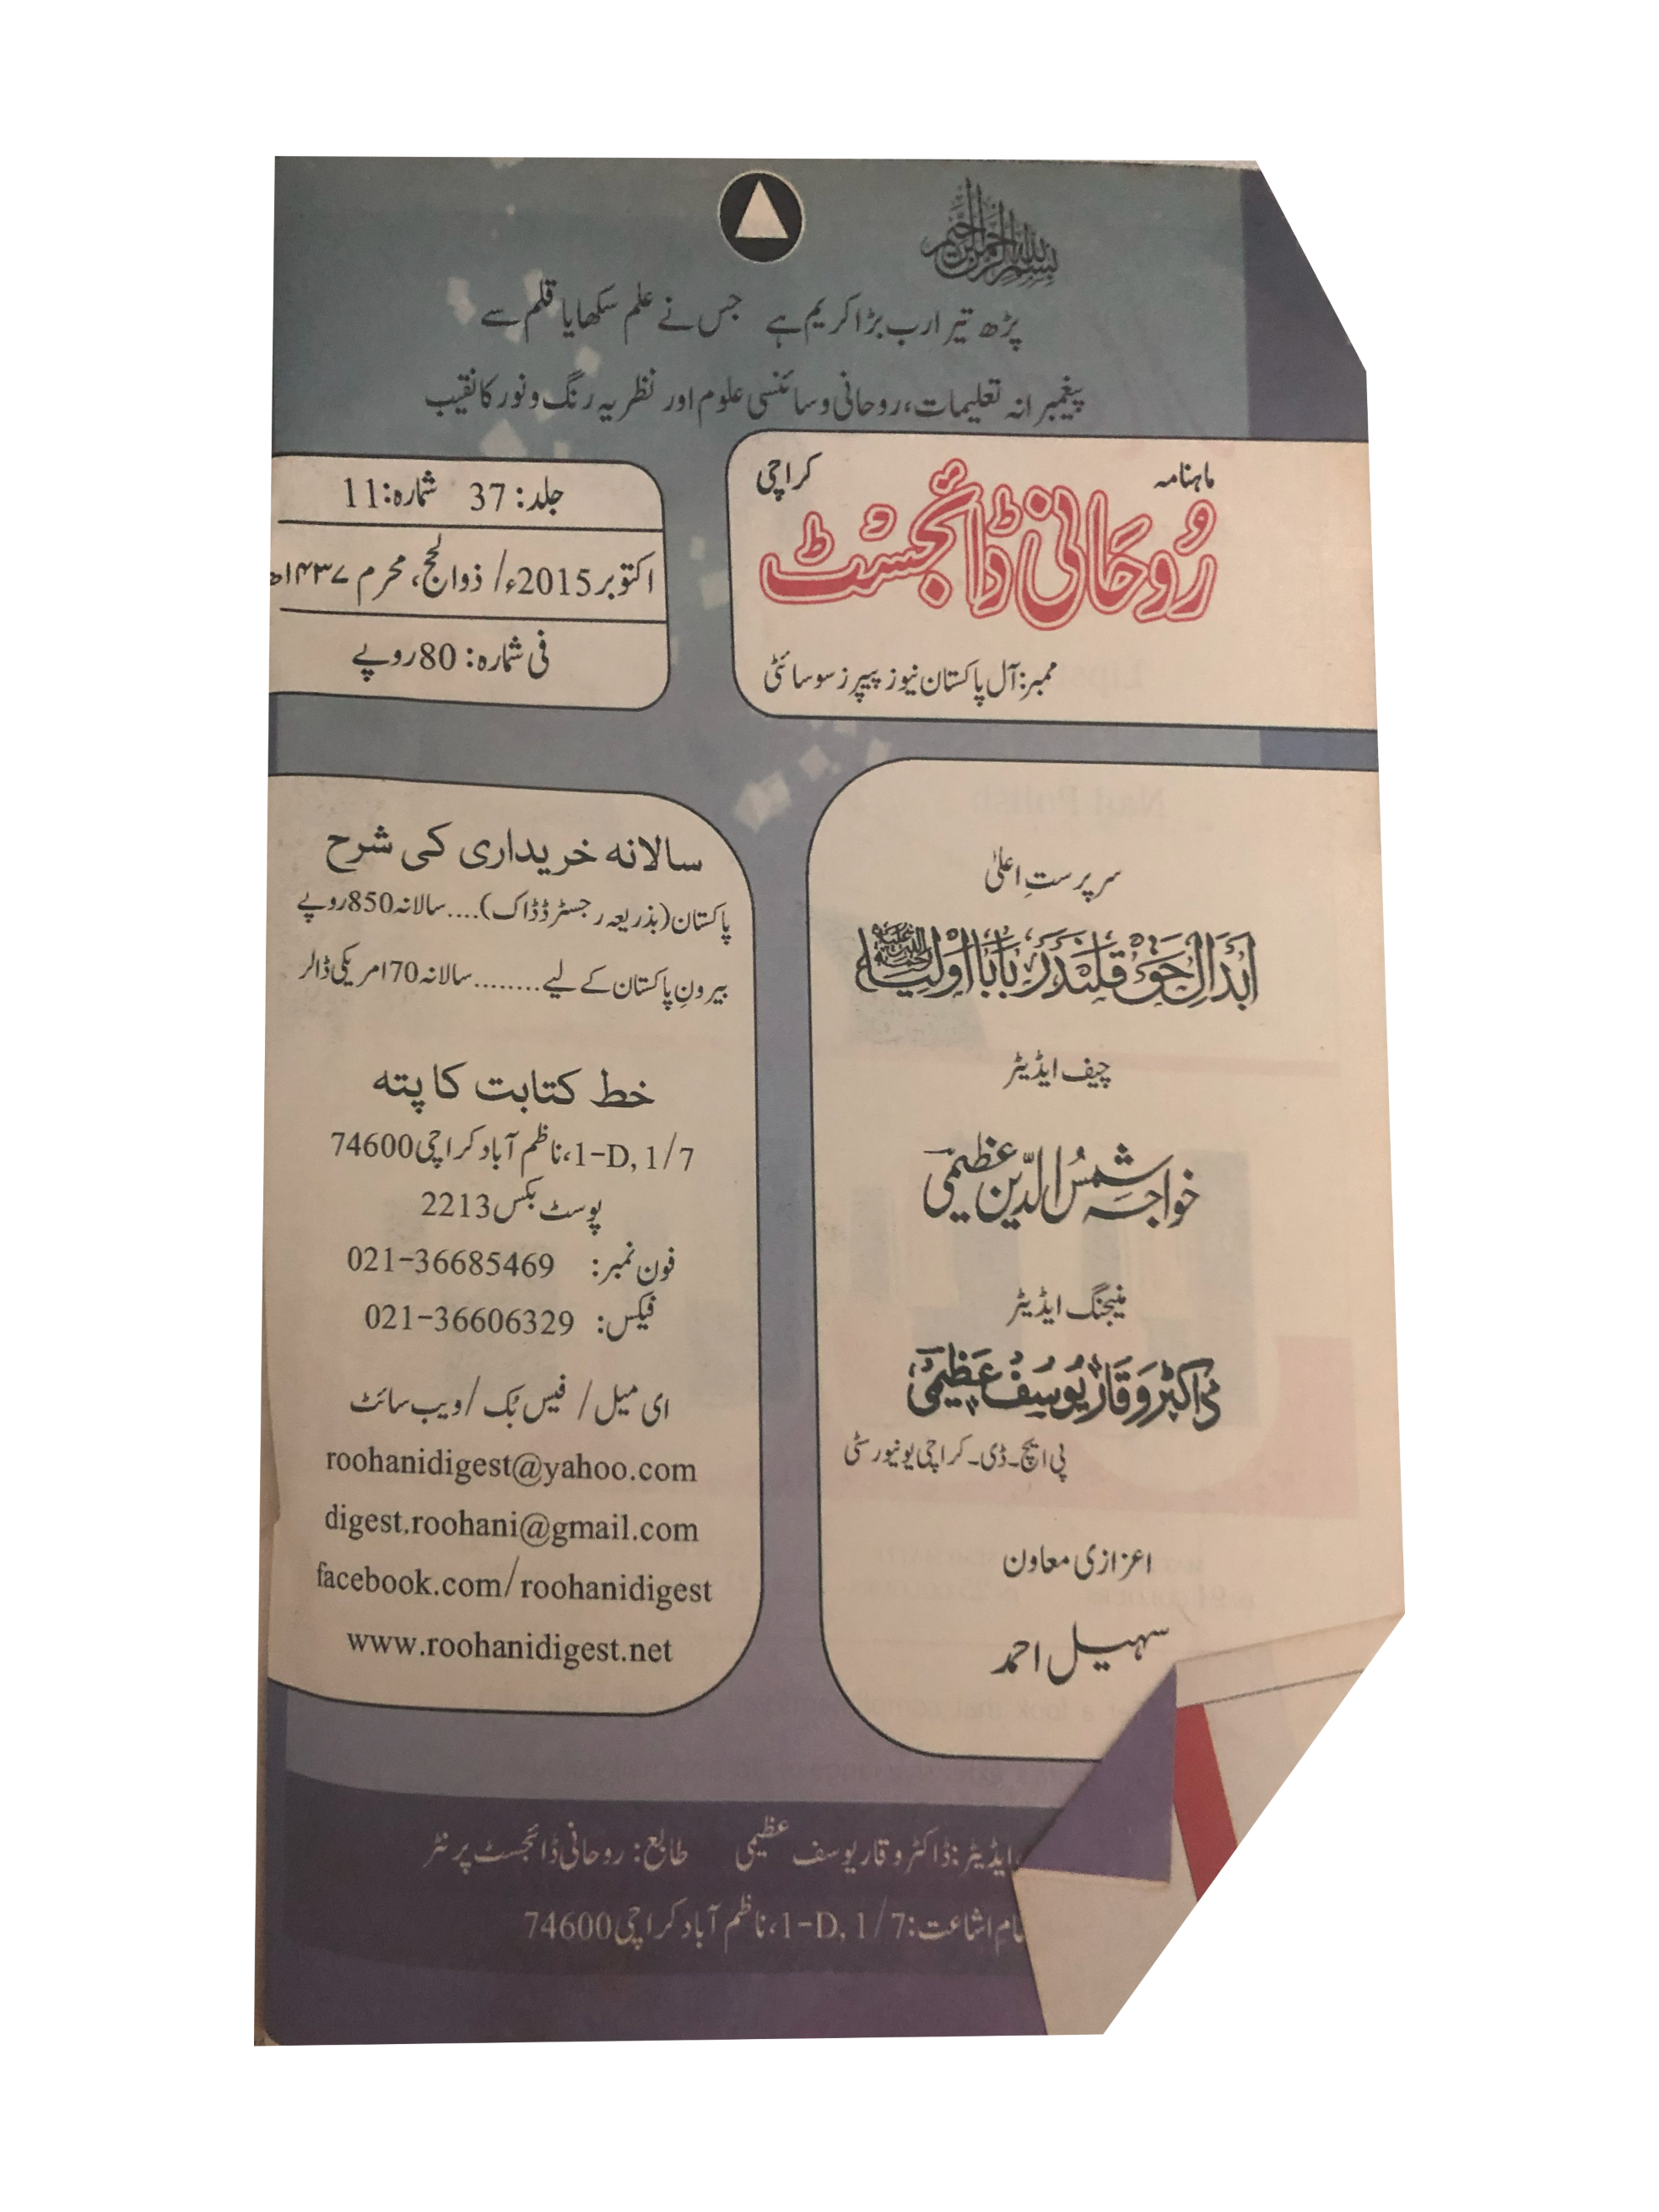 بسم اللہ الرحمن الرحیم
پڑھ تیرا رب بڑا کریم ہے جس نے علم سکھایا قلم سے
پیغمبرانہ تعلیمات، روحانی و سائنسی علوم اور نظریہ رنگ و نور کا نقیب
ماہنامہ کراچی
رُوحَانی ڈائجسٹ
ممبر: آل پاکستان نیوز پیپرز سوسائٹی
جلد: 37 شمارہ: 11
اکتوبر 2015ء/ ذوالحج، محرم ۱۴۳۷ھ
فی شمارہ: 80 روپے
سرپرستِ اعلیٰ
ابدالِ حق قلندر بابا اولیاء رحمۃ اللہ علیہ
چیف ایڈیٹر
خواجہ شمس الدّین عظیمی
منیجنگ ایڈیٹر
ڈاکٹر وقار یوسف عظیمی
پی ایچ۔ڈی۔کراچی یونیورسٹی
اعزازی معاون
سہیل احمد
سالانہ خریداری کی شرح
پاکستان (بذریعہ رجسٹرڈ ڈاک)....سالانہ 850 روپے
بیرونِ پاکستان کے لیے........سالانہ 70 امریکی ڈالر
خط کتابت کا پتہ
1-D, 1/7، ناظم آباد کراچی 74600
پوسٹ بکس 2213
فون نمبر: 021-36685469
فیکس: 021-36606329
ای میل/ فیس بُک/ ویب سائٹ
roohanidigest@yahoo.com
digest.roohani@gmail.com
facebook.com/roohanidigest
www.roohanidigest.net
ایڈیٹر: ڈاکٹر وقار یوسف عظیمی طابع: روحانی ڈائجسٹ پرنٹر
اشاعت: 1-D, 1/7، ناظم آباد کراچی 74600